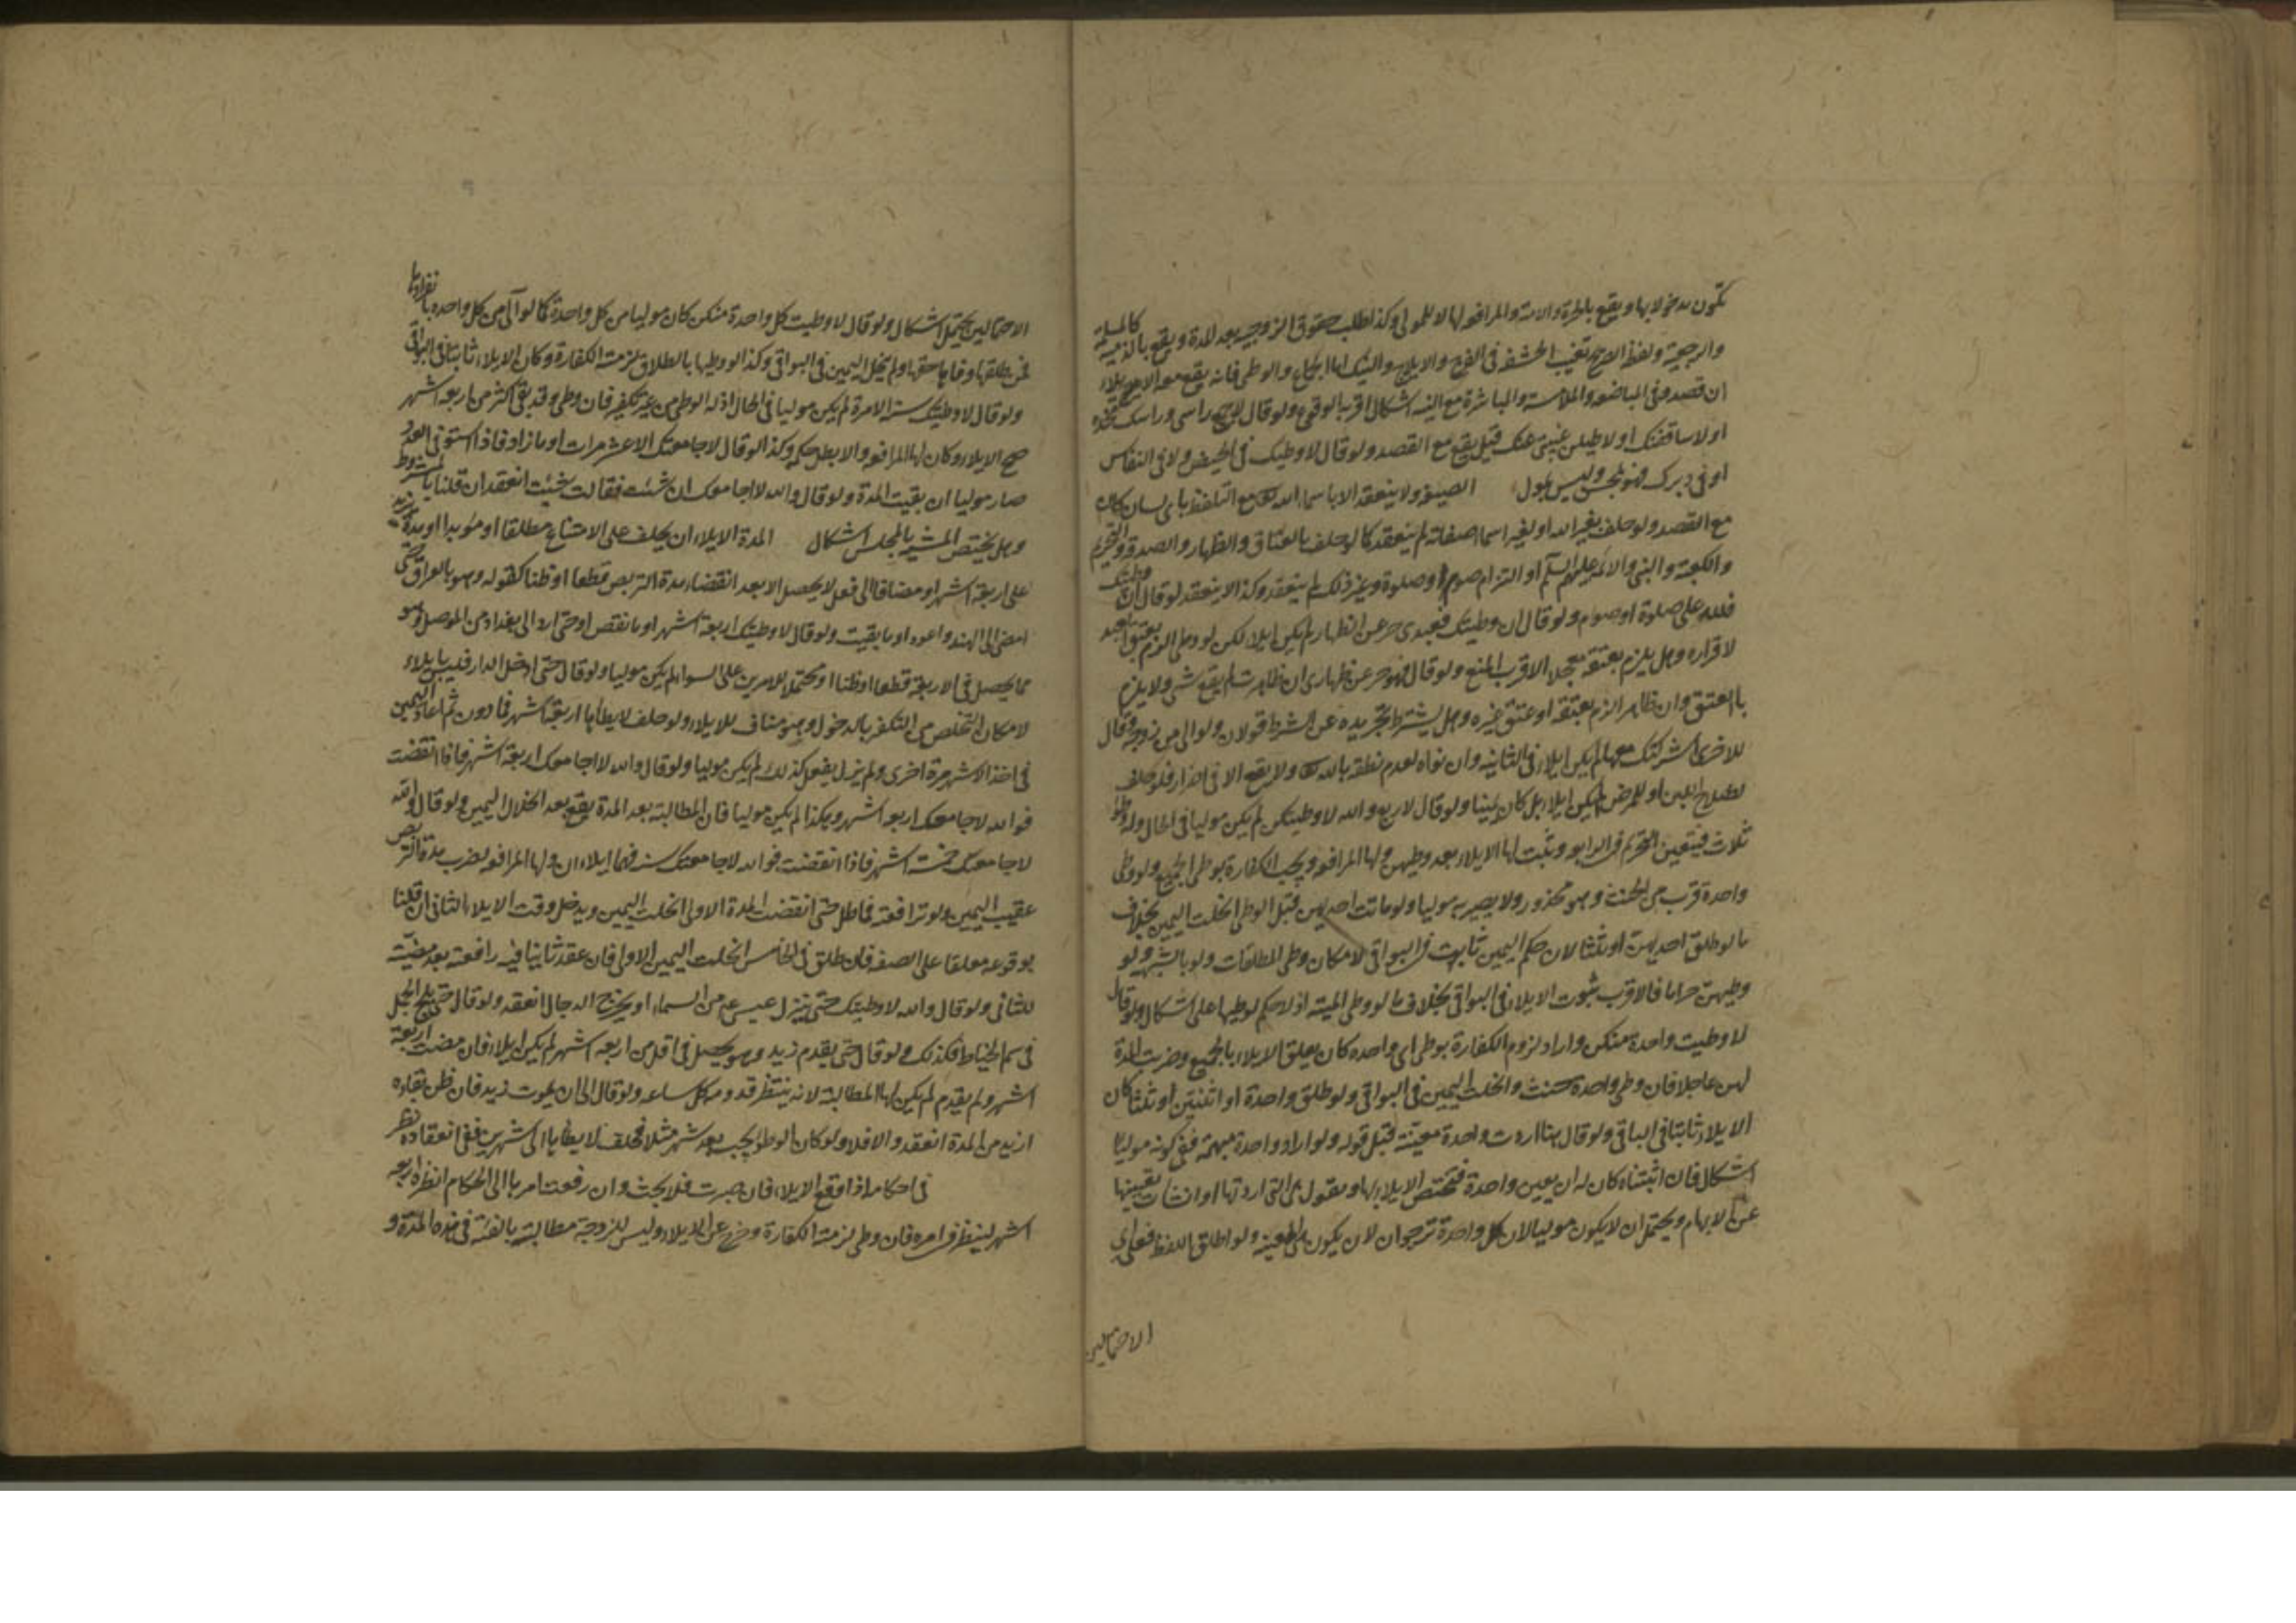 تكون مدخولا بها ويقع بالحرة والامة والمرافعة لها لا للمولى وكذا طلب حقوق الزوجية بعد المدة ويقع بالذمية كالمسلمة
والرجعية ولفظ الصريح تغيب الحشفة فى الفرج والايلاج والنيك اما الجماع والوطى فانه يقع معه الايلاء
ان قصد وفى المباضعة والملامسة والمباشرة مع النية اشكال اقربه الوقوع ولو قال لا جمع راسى وراسك مخدة
او لا ساقفتك او لاطيلن غيبتى عنك قيل يقع مع القصد ولو قال لا وطيتك فى الحيض ولا فى النفاس
او فى دبرك فهو محسن وليس بمول الصيغة ولا ينعقد الا باسماء الله تعالى مع التلفظ باى لسان كان
مع القصد ولو حلف بغير الله او لغير اسماء صفاته لم ينعقد كما لو حلف بالعتاق والظهار والصدقة والتحريم
والكعبة والنبى والائمة عليهم السلام او التزام صوم او صلوة وغير ذلك لم ينعقد وكذا لا ينعقد لو قال ان وطيتك
فلله على صلوة او صوم ولو قال ان وطيتك فعبدى حر عن الظهار لم يكن ايلاء لكن لو وطى الزم بعتق العبد
لاقراره وهل يلزم بعتقه معجلا الاقرب المنع ولو قال فهو حر عن ظهارى ان ظاهرت لم يقع شى ولا يلزم
بالعتق وان ظاهر الزم بعتقه او عتق غيره وهل يشترط تجريده عن الشرط قولان ولو الى من زوجة وقال
للاخرى اشركتك معها لم يكن ايلاء فى الثانية وان نواه لعدم نطقه بالله تعالى ولا يقع الا فى اضرار فلو حلف
لصلاح اللبن او للمرض لم يكن ايلاء بل كان يمينا ولو قال لاربع والله لا وطيتكن لم يكن موليا فى الحال وله وطؤ
ثلاث فيتعين التحريم فى الرابعة ويثبت لها الايلاء بعد وطيهن ولها المرافعة ويجب الكفارة بوطى الجميع ولو وطى
واحدة قرب من الحنث وهو محذور ولا يصير به موليا ولو ماتت احديهن قبل الوطى انحلت اليمين بخلاف
ما لو طلق احديهن او ثلثا لان حكم اليمين ثابت فى البواقى لامكان وطى المطلقات ولو بالشبهة ولو
وطيهن حراما فالاقرب ثبوت الايلاء فى البواقى بخلاف ما لو وطى الميتة اذ لا حكم لوطيها على اشكال ولو قال
لا وطيت واحدة منكن واراد لزوم الكفارة بوطى اى واحدة كان تعلق الايلاء بالجميع وضربت المدة
لهن عاجلا فان وطى واحدة حنث وانحلت اليمين فى البواقى ولو طلق واحدة او اثنتين او ثلثا كان
الايلاء ثابتا فى الباقى ولو قال هنا اردت واحدة معينة قبل قوله ولو اراد واحدة مبهمة ففى كونه موليا
اشكال فان اثبتناه كان له ان يعين واحدة فيختص الايلاء بها ويقول هى التى اردتها او انشات تعيينها
عن الابهام ويحتمل ان لا يكون موليا لان كل واحدة ترجو ان لا تكون هى المعينة ولو اطلق اللفظ فعلى اى
الاحتمالين
الاحتمالين يحتمل اشكال ولو قال لا وطيت كل واحدة منكن كان موليا من كل واحدة كما لو آلى من كل واحدة بانفرادها
فمن طلقها وفاها حقها ولم ينحل اليمين فى البواقى وكذا لو وطيها بالطلاق لزمته الكفارة وكان الايلاء ثابتا فى البواقى
ولو قال لا وطيتك سنة الا مرة لم يكن موليا فى الحال اذ له الوطى من غير تكفير فان وطى وقد بقى اكثر من اربعة اشهر
صح الايلاء وكان لها المرافعة والا بطل حكمه وكذا لو قال لا جامعتك الا عشر مرات او ما زاد فاذا استوفى العدد
صار موليا ان بقيت المدة ولو قال والله لا جامعتك ان شئت فقالت شئت انعقد ان قلنا بالمشروط
وهل يختص المشية بالمجلس اشكال المدة الايلاء ان يحلف على الامتناع مطلقا او مؤبدا او مدة تزيد
على اربعة اشهر او مضافا الى فعل لا يحصل الا بعد انقضاء مدة التربص قطعا او ظنا كقوله وهو بالعراق حتى
امضى الى الهند واعود او ما بقيت ولو قال لا وطيتك اربعة اشهر او ما نقص او حتى ارد الى بغداد من الموصل وهو
مما يحصل فى الاربعة قطعا او ظنا او محتمل الامرين على السواء لم يكن موليا ولو قال حتى ادخل الدار فليس بايلاء
لامكان التخلص من التكفير بالدخول وهو مناف للايلاء ولو حلف لا يطأها اربعة اشهر فما دون ثم اعاد اليمين
فى اخر الاشهر مرة اخرى ولم يزل يفعل كذلك لم يكن موليا ولو قال والله لا جامعتك اربعة اشهر فاذا انقضت
فوالله لا جامعتك اربعة اشهر وهكذا لم يكن موليا فان المطالبة بعد المدة يقع بعد انحلال اليمين ولو قال والله
لا جامعتك خمسة اشهر فاذا انقضت فوالله لا جامعتك سنة فهما ايلاءان ولها المرافعة لضرب مدة التربص
عقيب اليمين ولو ترافعته فماطل حتى انقضت المدة الاولى انحلت اليمين ويدخل وقت الايلاء الثانى ان قلنا
بوقوعه معلقا على الصفة فان طلق فى الخامس انحلت اليمين الاولى فان عقد ثانيا فيه رافعته بعد مضيه
للثانى ولو قال والله لا وطيتك حتى ينزل عيسى ع من السماء او يخرج الدجال انعقد ولو قال حتى يلج الجمل
فى سم الخياط فكذلك ولو قال حتى يقدم زيد وهو يحصل فى اقل من اربعة اشهر لم يكن ايلاء فان مضت اربعة
اشهر ولم يقدم لم يكن لها المطالبة لانه ينتظر قدومه كل ساعة ولو قال الى ان يموت زيد فان ظن بقاءه
ازيد من المدة انعقد والا فلا ولو كان الوطؤ يجب بعد شهر مثلا فحلف لا يطأها الى شهرين ففى انعقاده نظر
فى احكامه اذا وقع الايلاء فان صبرت فلا بحث وان رفعت امرها الى الحاكم انظره اربعة
اشهر لينظر فى امره فان وطى لزمته الكفارة وخرج عن الايلاء وليس للزوجة مطالبته بالفئة فى هذه المدة و